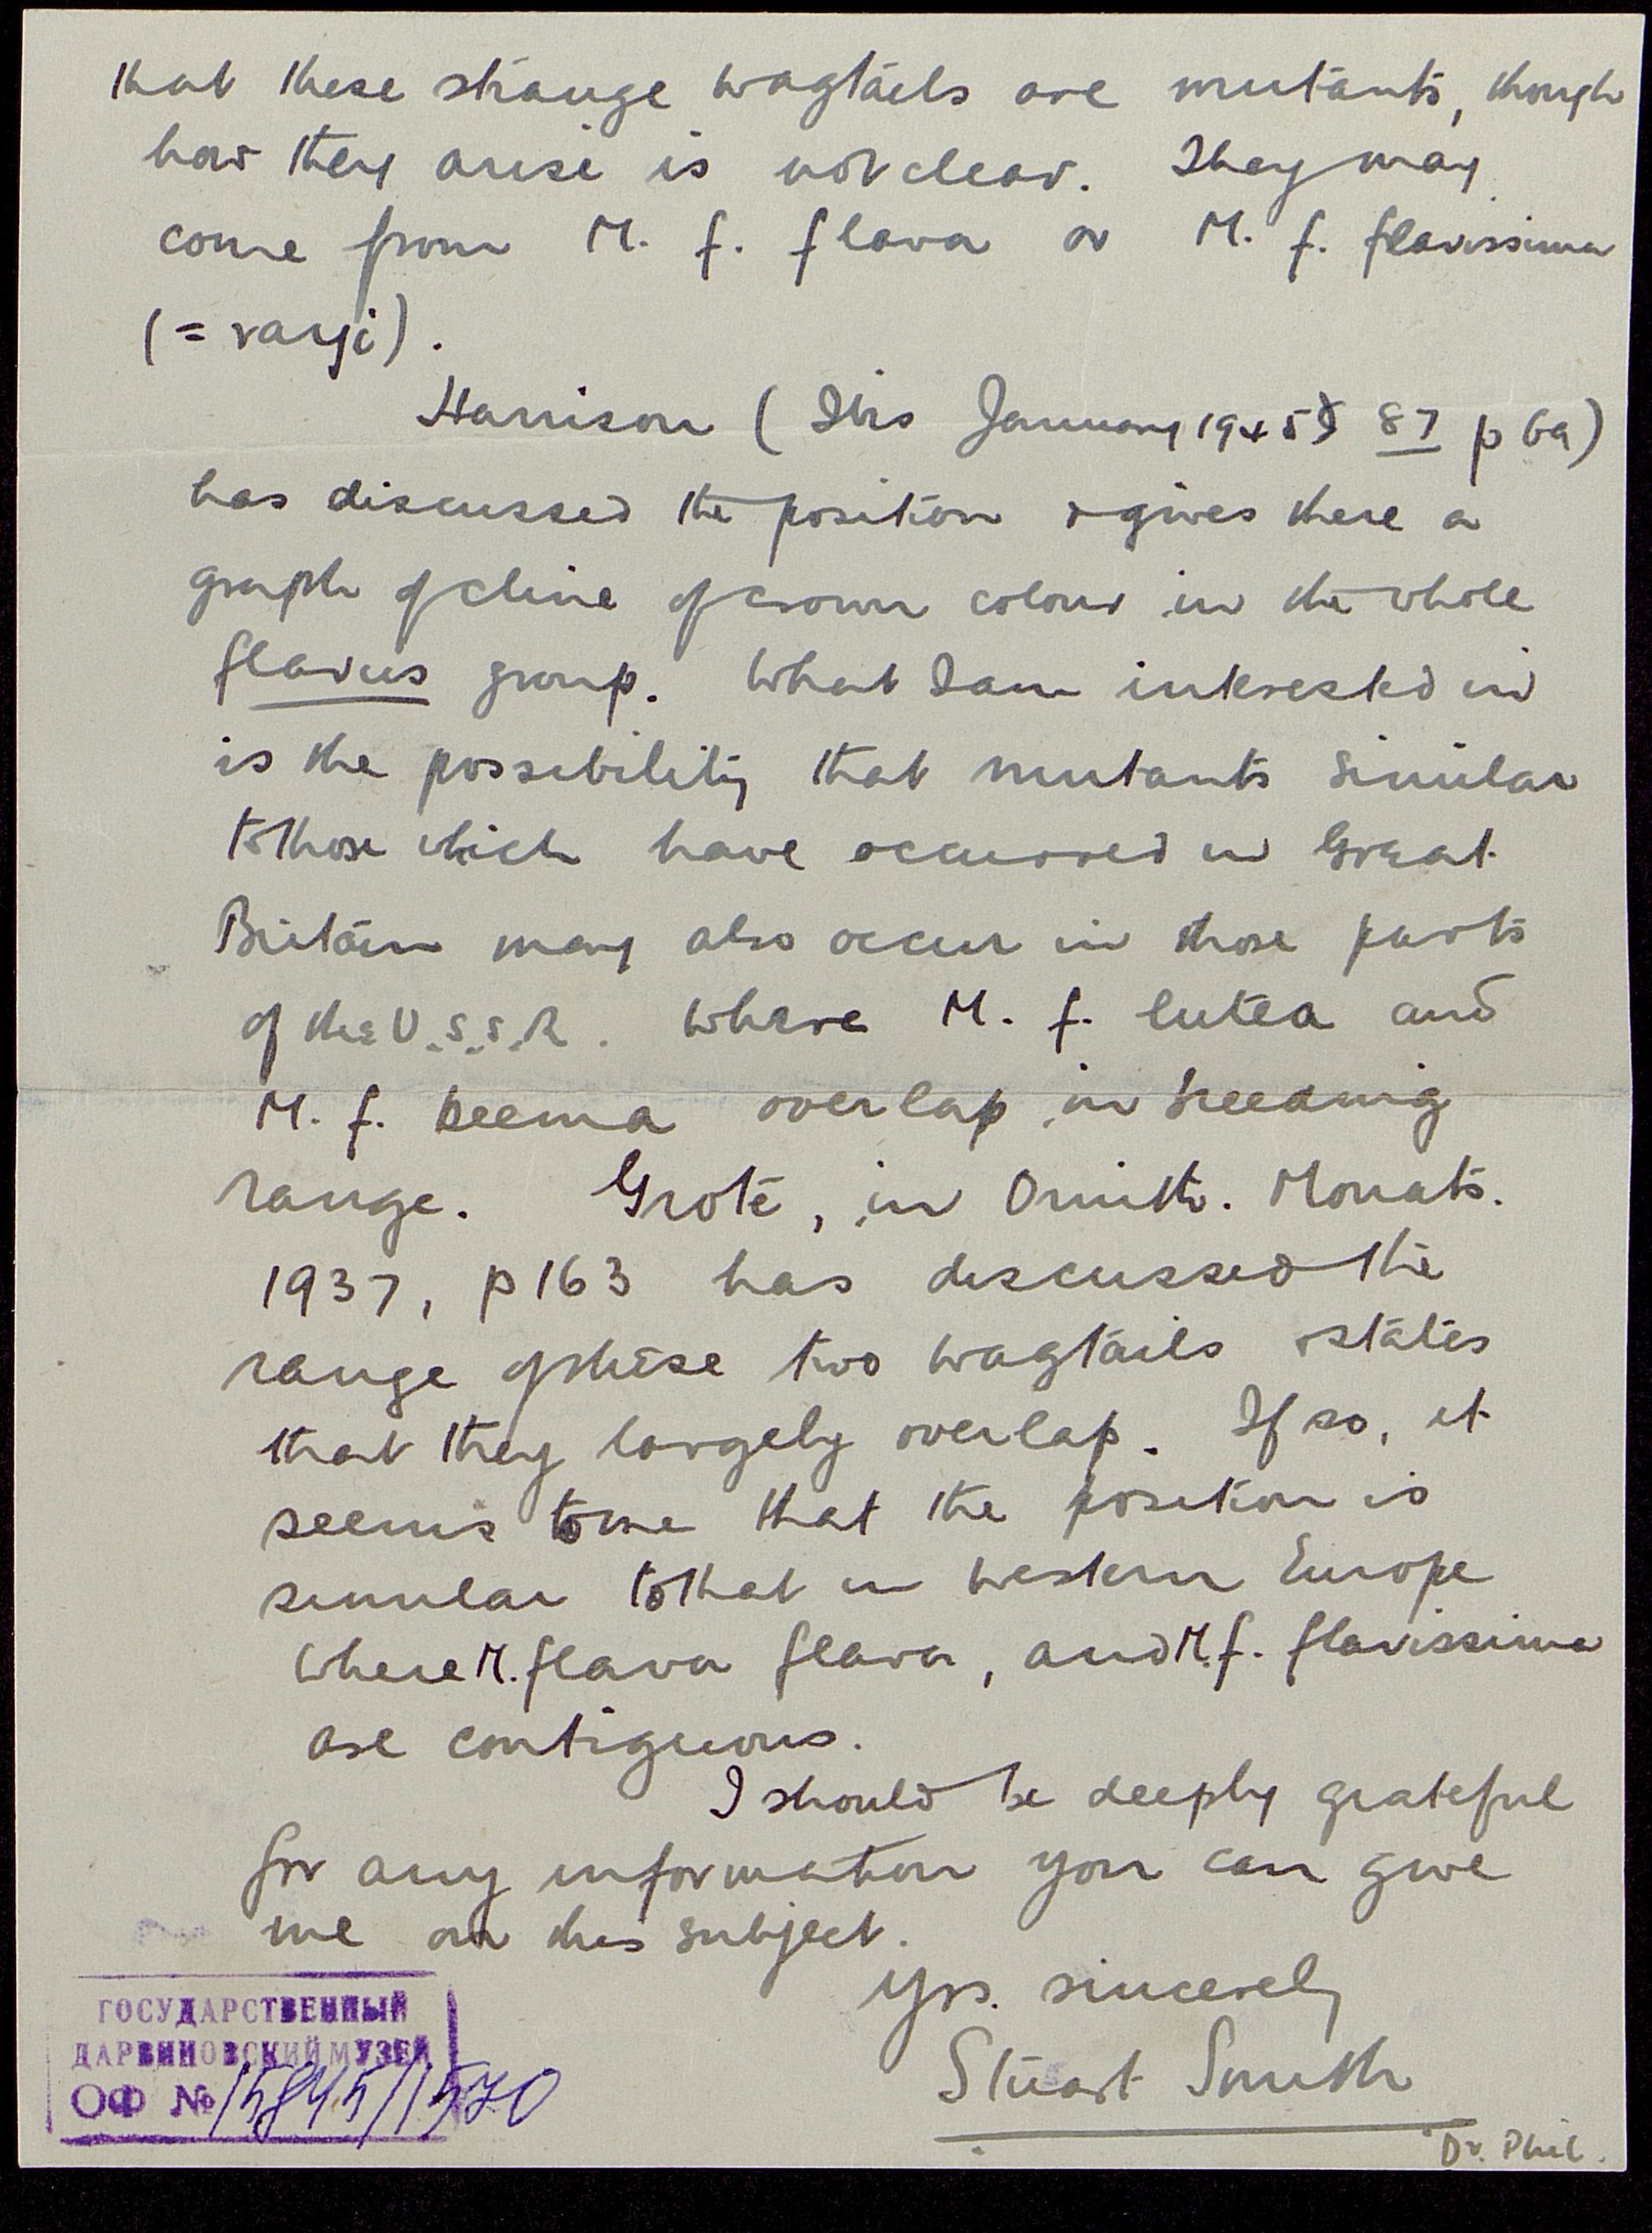 that these strange wagtails are mutants, though
how they arise is not clear. They may
come from M. f. flava or M. f. flavissima
(= rayi).
Harrison (Ibis January 1945 87 p 69)
has discussed the position & gives there a
graph of cline of crown colour in the whole
flavus group. What I am interested in
is the possibility that mutants similar
to those which have occurred in Great
Britain may also occur in those parts
of the U.S.S.R. where M. f. lutea and
M. f. beema overlap in breeding
range. Grote, in Ornith. Monats.
1937, p 163 has discussed the
range of these two wagtails & states
that they largely overlap. If so, it
seems to me that the position is
similar to that in western Europe
where M. flava flava, and M. f. flavissima
are contiguous.
I should be deeply grateful
for any information you can give
me on this subject.
Yrs. sincerely
Stuart Smith
Dr. Phil.
ГОСУДАРСТВЕННЫЙ
ДАРВИНОВСКИЙ МУЗЕЙ
ОФ № 15845/1570